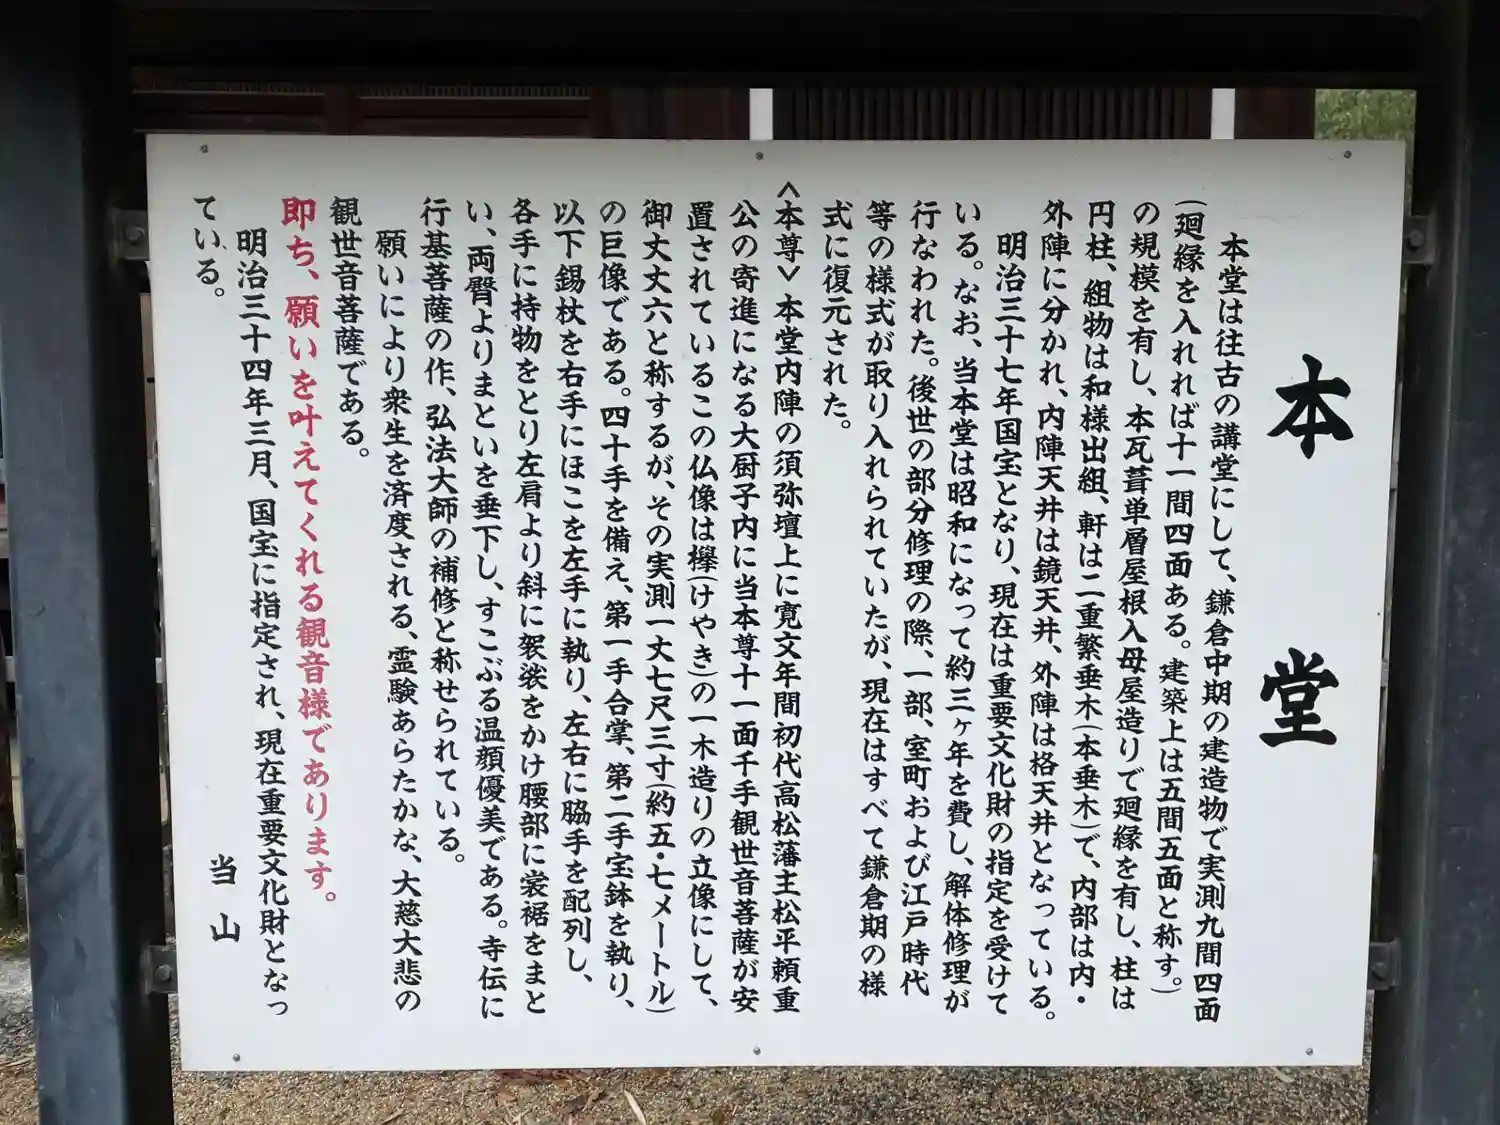 本堂
本堂は往古の講堂にして、鎌倉中期の建造物で実測九間四面
(廻縁を入れれば十一間四面ある。建築上は五間五面と称す。)
の規模を有し、本瓦葺単層屋根入母屋造りで廻縁を有し、柱は
円柱、組物は和様出組、軒は二重繁垂木(本垂木)で、内部は内・
外陣に分かれ、内陣天井は鏡天井、外陣は格天井となっている。
明治三十七年国宝となり、現在は重要文化財の指定を受けて
いる。なお、当本堂は昭和になって約三ヶ年を費し、解体修理が
行なわれた。後世の部分修理の際、一部、室町および江戸時代
等の様式が取り入れられていたが、現在はすべて鎌倉期の様
式に復元された。
<本尊> 本堂内陣の須弥壇上に寛文年間初代高松藩主松平頼重
公の寄進になる大厨子内に当本尊十一面千手観世音菩薩が安
置されているこの仏像は欅(けやき)の一木造りの立像にして、
御丈丈六と称するが、その実測一丈七尺三寸(約五・七メートル)
の巨像である。四十手を備え、第一手合掌、第二手宝鉢を執り、
以下錫杖を右手にほこを左手に執り、左右に脇手を配列し、
各手に持物をとり左肩より斜に袈裟をかけ腰部に裳裾をまと
い、両臂よりまといを垂下し、すこぶる温顔優美である。寺伝に
行基菩薩の作、弘法大師の補修と称せられている。
願いにより衆生を済度される、霊験あらたかな、大慈大悲の
観世音菩薩である。
即ち、願いを叶えてくれる観音様であります。
明治三十四年三月、国宝に指定され、現在重要文化財となっ
ている。
当山